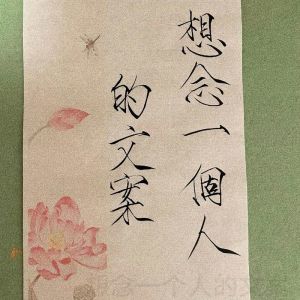 想念一個人
的文案
想念一个人的文案